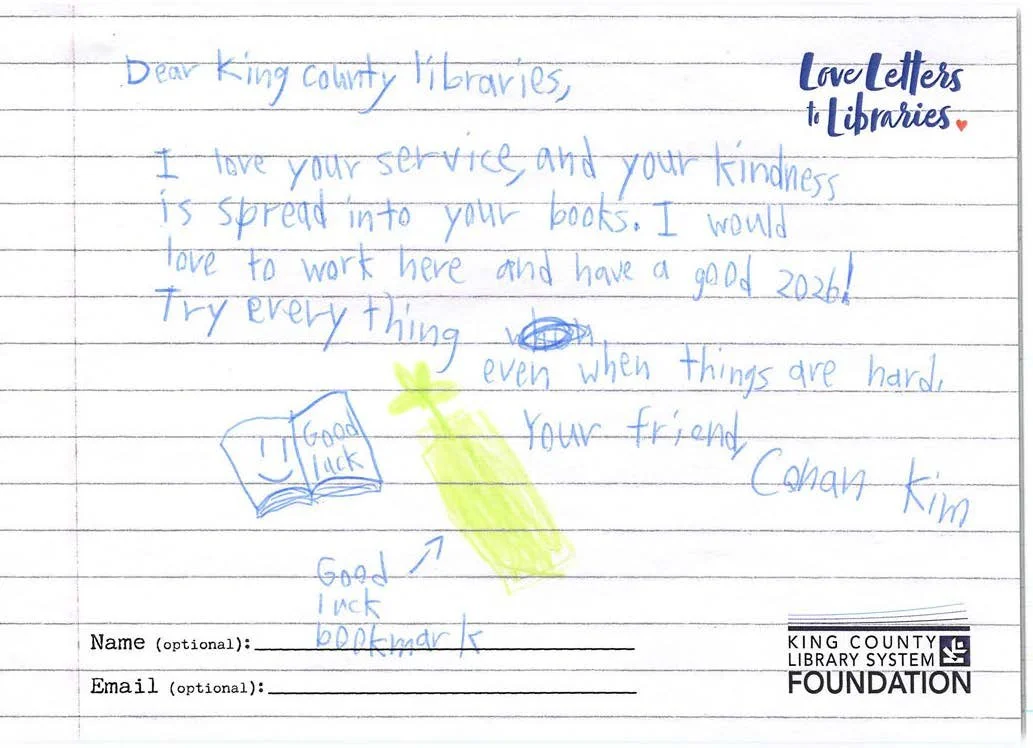 Dear King County libraries,
Love Letters
to Libraries.
I love your service, and your kindness
is spread into your books. I would
love to work here and have a good 2026!
Try every thing
even when things are hard.
Your friend,
Cohan Kim
Good
luck
Good
luck
bookmark
Name (optional):
Email (optional):
KING COUNTY
LIBRARY SYSTEM
FOUNDATION